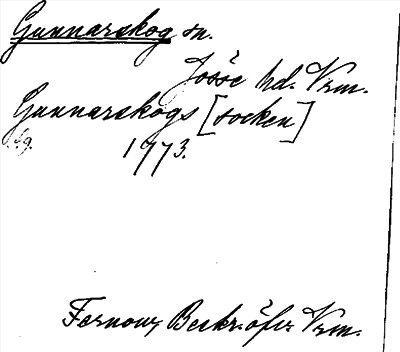 Gunnarskog sn.
Jösse hd. Vrm.
Gunnarskogs [socken]
1773.
Fernow, Beskr. öfv. Vrm.